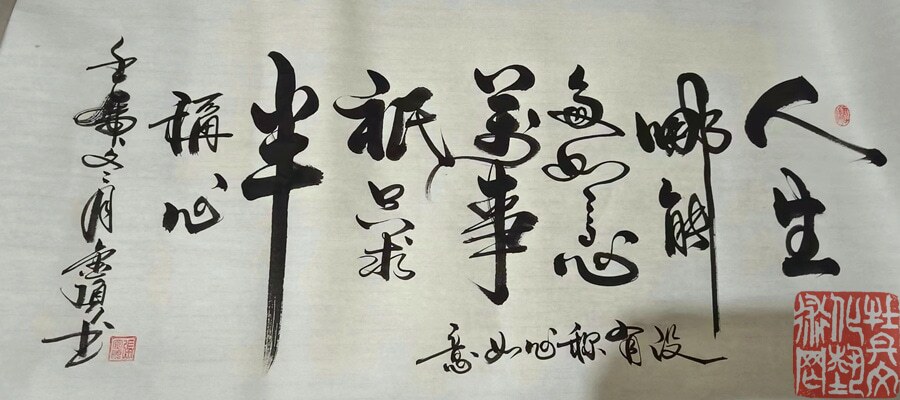 人生
哪能
多如意
萬事
祇只求
半
稱心
壬寅冬月书
没有称心如意